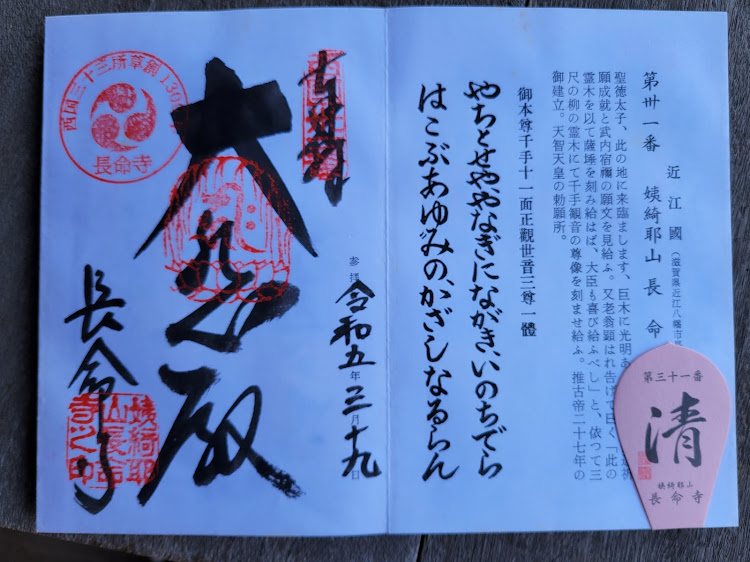 近江國 (滋賀県近江八幡市
第卅一番 姨綺耶山 長命
聖徳太子、此の地に来臨まします、巨木に光明あ
願成就と武内宿禰の願文を見給ふ。又老翁顕はれ告げて曰く「此の
霊木を以て薩埵を刻み給はば、大臣も喜び給ふべし」と、依つて三
尺の柳の霊木にて千手観音の尊像を刻ませ給ふ。推古帝二十七年の
御建立。天智天皇の勅願所。
御本尊千手十一面正觀世音三尊一體
やちとせややなぎにながきいのちでら
はこぶあゆみのかざしなるらん
第三十一番
清
姨綺耶山
長命寺
奉拝
令和五年三月十九日
大悲殿
長命寺
西国三十三所草創1300年
長命寺
姨綺耶
山長命
寺之印